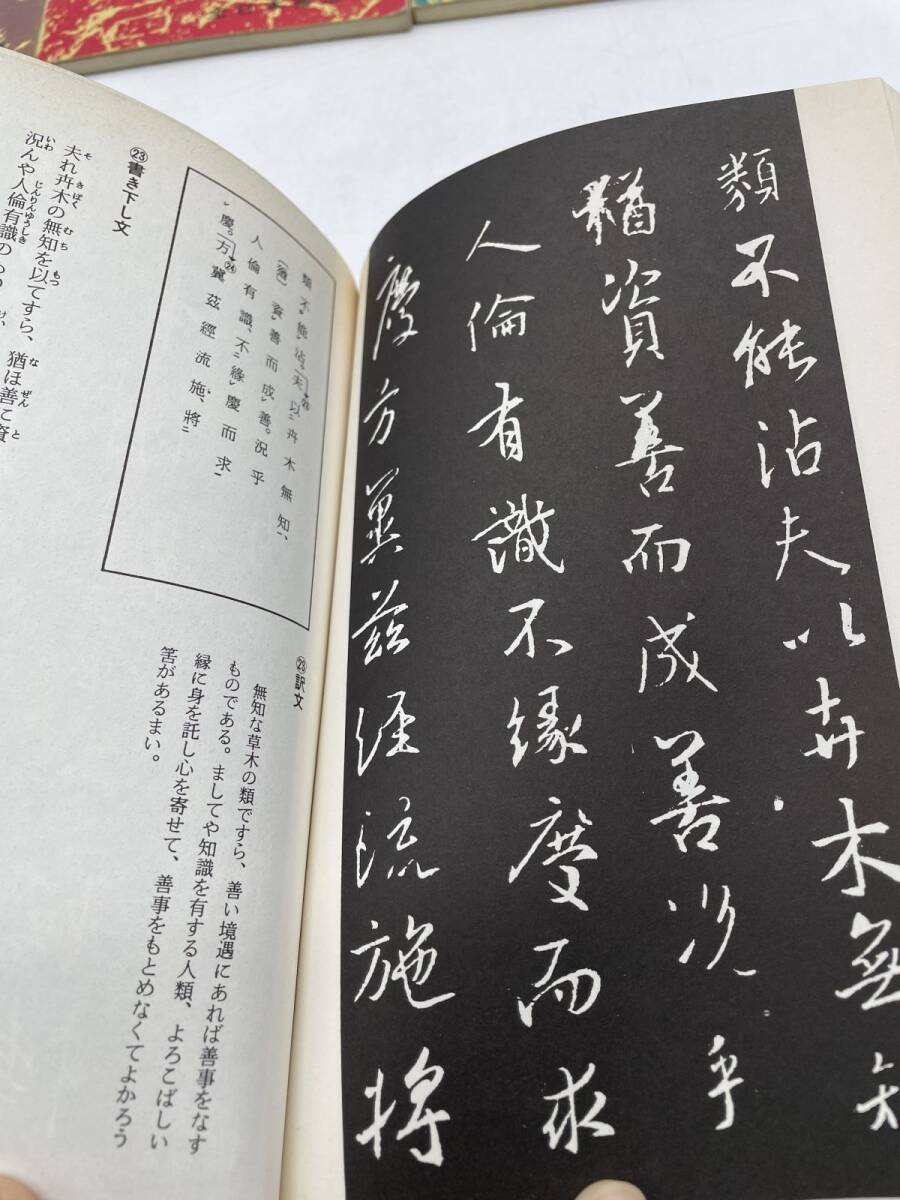 類不能沾夫以卉木無知
猶資善而成善況乎
人倫有識不緣慶而求
慶方冀茲經流施將
類不能沾。夫以卉木無知、
(猶)資善而成善。況乎
人倫有識、不緣慶而求
慶。方冀茲經流施、將
㉓書き下し文
そ きぼく むち もつ な ぜん と
夫れ卉木の無知を以てすら、猶ほ善に資
いわ じんりんゆうしき
況んや人倫有識の
㉓訳文
無知な草木の類ですら、善い境遇にあれば善事をなす
ものである。ましてや知識を有する人類、よろこばしい
縁に身を託し心を寄せて、善事をもとめなくてよかろう
筈があるまい。